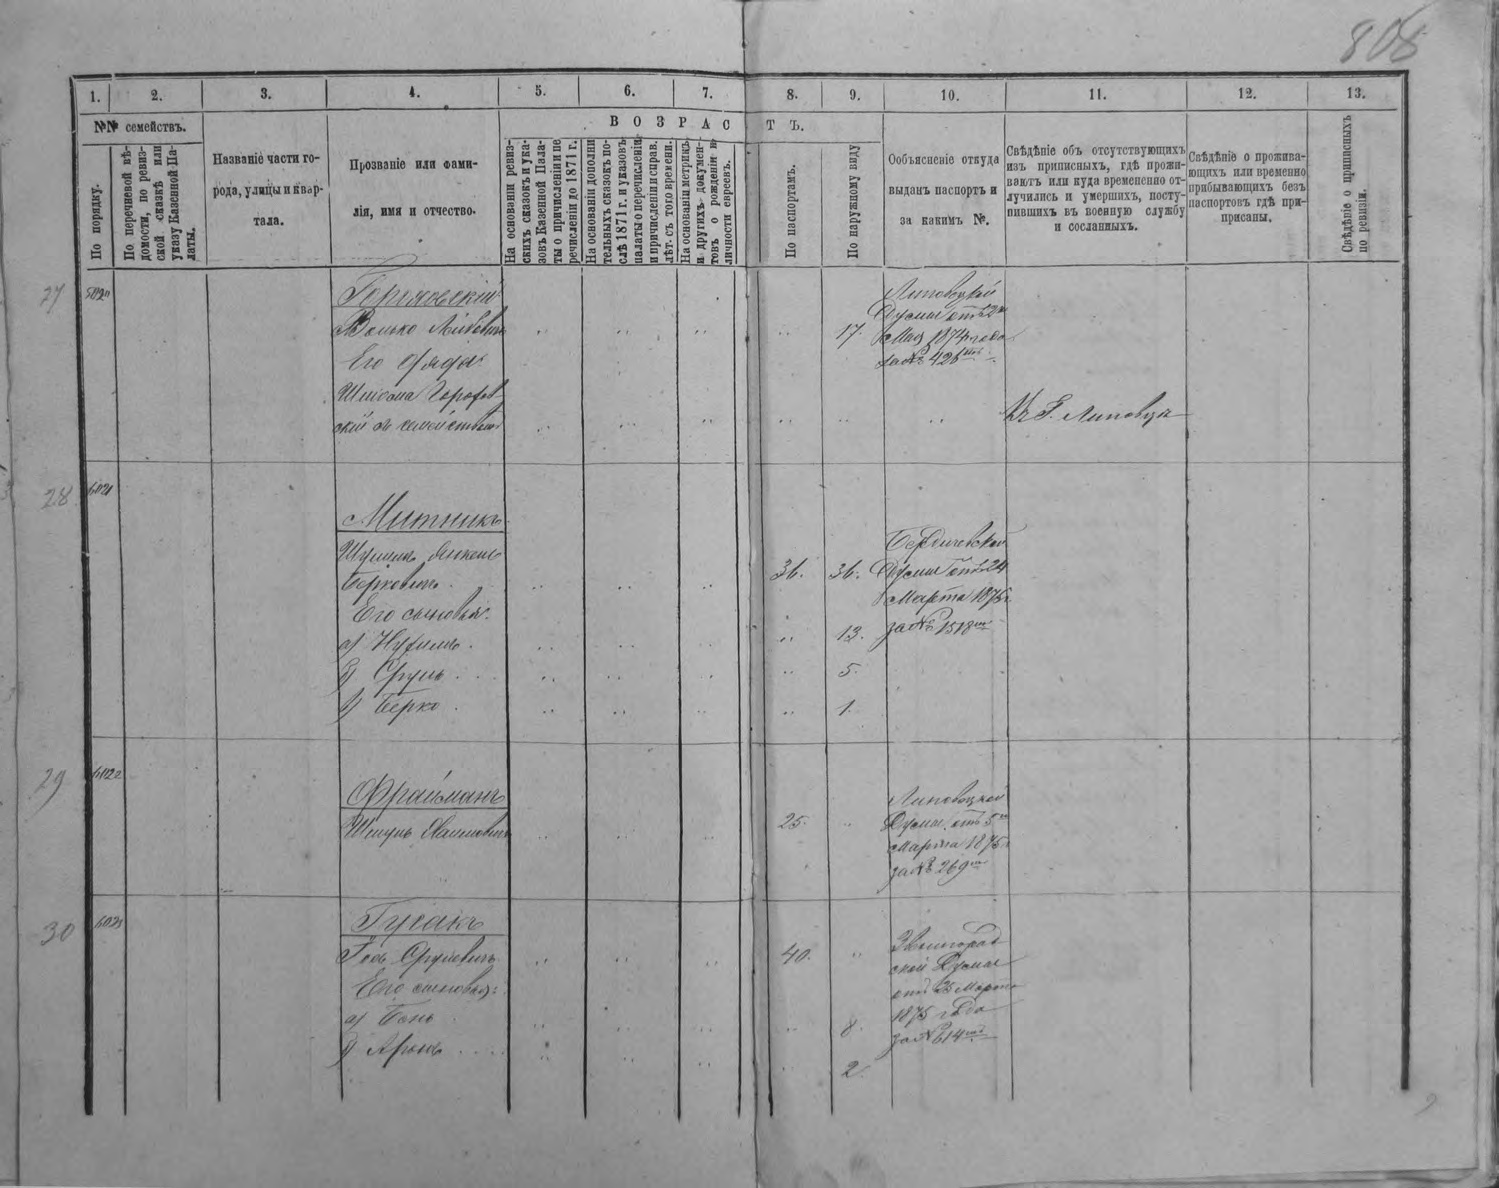 808
1. 2. 3. 4. 5. 6. 7. 8. 9. 10. 11. 12. 13.
№№ семействъ.
По порядку.
По перечневой вѣ-
домости, по ревиз-
ской сказкѣ или
указу Казенной Па-
латы.
Названіе части го-
рода, улицы и квар-
тала.
Прозваніе или фами-
лія, имя и отчество.
ВОЗРАСТЪ.
На основаніи ревиз-
скихъ сказокъ и ука-
зовъ Казенной Пала-
ты о причисленіи и пе
речисленіи до 1871 г.
На основаніи дополни
тельныхъ сказокъ по-
слѣ 1871 г. и указовъ
палаты о перечисленіи
и причисленіи и справ.
лѣт. съ того времени.
На основаніи метрикъ
и другихъ докумен-
товъ о рожденіи и
личности евреевъ.
По паспортамъ.
По наружному виду
Ообъясненіе откуда
выданъ паспортъ и
за какимъ №.
Свѣдѣніе объ отсутствующихъ
изъ приписныхъ, гдѣ прожи-
ваютъ или куда временно от-
лучились и умершихъ, посту-
пившихъ въ военную службу
и сосланныхъ.
Свѣдѣніе о прожива-
ющихъ или временно
прибывающихъ безъ
паспортовъ гдѣ при-
писаны.
Свѣдѣніе о приписныхъ
по ревизіи.
27
Волько Лейбовичъ
17.
Его дядя
скій съ семействомъ
Липовецкой
Думы отъ 2го
Мая 1874 года
за № 426
Къ Г. Липовцы
28
6021
Митникъ
Берковичъ
36. 36.
Его сыновья:
а) Нухимъ. 13.
б) Сруль 5.
в) Берко 1.
Бердичевской
Думы отъ 24
Марта 1875 г
за № 1518
29
6022
Фрайманъ
Шмуль Хаимовичъ 25.
Липовецкой
Думы отъ 5го
Марта 1875 г
за № 269
30
6023
Гусакъ
Срулевичъ 40.
Его сыновья:
а) Бень 8.
б) Аронъ 2.
Звенигород
ской Думы
отъ Марта
1875 года
за № 614